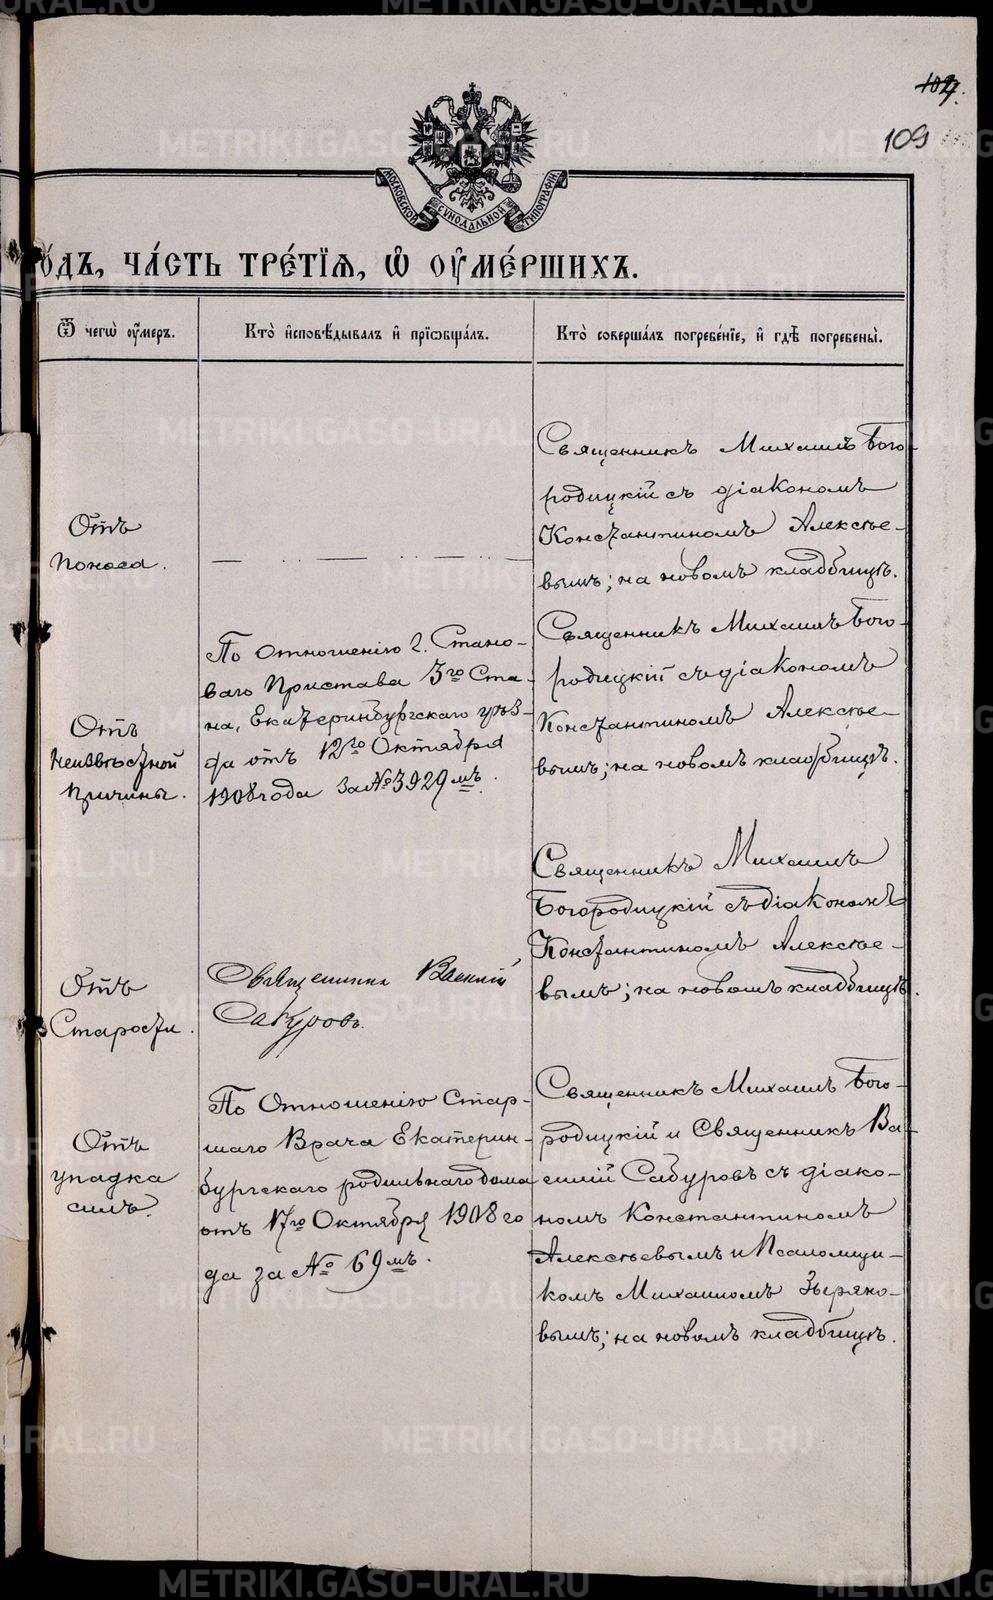 109
МОСКОВСКОЙ СѴНОДАЛЬНОЙ ТИПОГРАФІИ
о́дъ, ча́сть тре́тїѧ, ѡ҆ оу҆ме́ршихъ.
Ѿ чегѡ̀ оу҆́меръ.
Кто̀ и҆сповѣ́дывалъ и҆ прїѡбща́лъ.
Кто̀ соверша́лъ погребе́нїе, и҆ гдѣ̀ погребены̀.
Отъ
поноса.
Священникъ Михаилъ Бого-
родицкій съ діакономъ
Константиномъ Алексѣе-
вымъ; на новомъ кладбищѣ.
Отъ
неизвѣстной
причины.
По отношенію г. Стано-
ваго Пристава 3го Ста-
на, Екатеринбургскаго уѣз-
да отъ 12го Октября
1908 года за № 3929мъ.
Священникъ Михаилъ Бого-
родицкій съ діакономъ
Константиномъ Алексѣе-
вымъ; на новомъ кладбищѣ.
Отъ
Старости.
Священникъ Василій
Сабуровъ.
Священникъ Михаилъ
Богородицкій съ діакономъ
Константиномъ Алексѣе-
вымъ; на новомъ кладбищѣ.
Отъ
упадка
силъ.
По отношенію Стар-
шаго Врача Екатерин-
бургскаго родильнаго дома
отъ 17го Октября 1908 го
да за № 69мъ.
Священникъ Михаилъ Бого-
родицкій и Священникъ Ва-
силій Сабуровъ съ діако-
номъ Константиномъ
Алексѣевымъ и Псаломщи-
комъ Михаиломъ Зыряно-
вымъ; на новомъ кладбищѣ.
METRIKI.GASO-URAL.RU